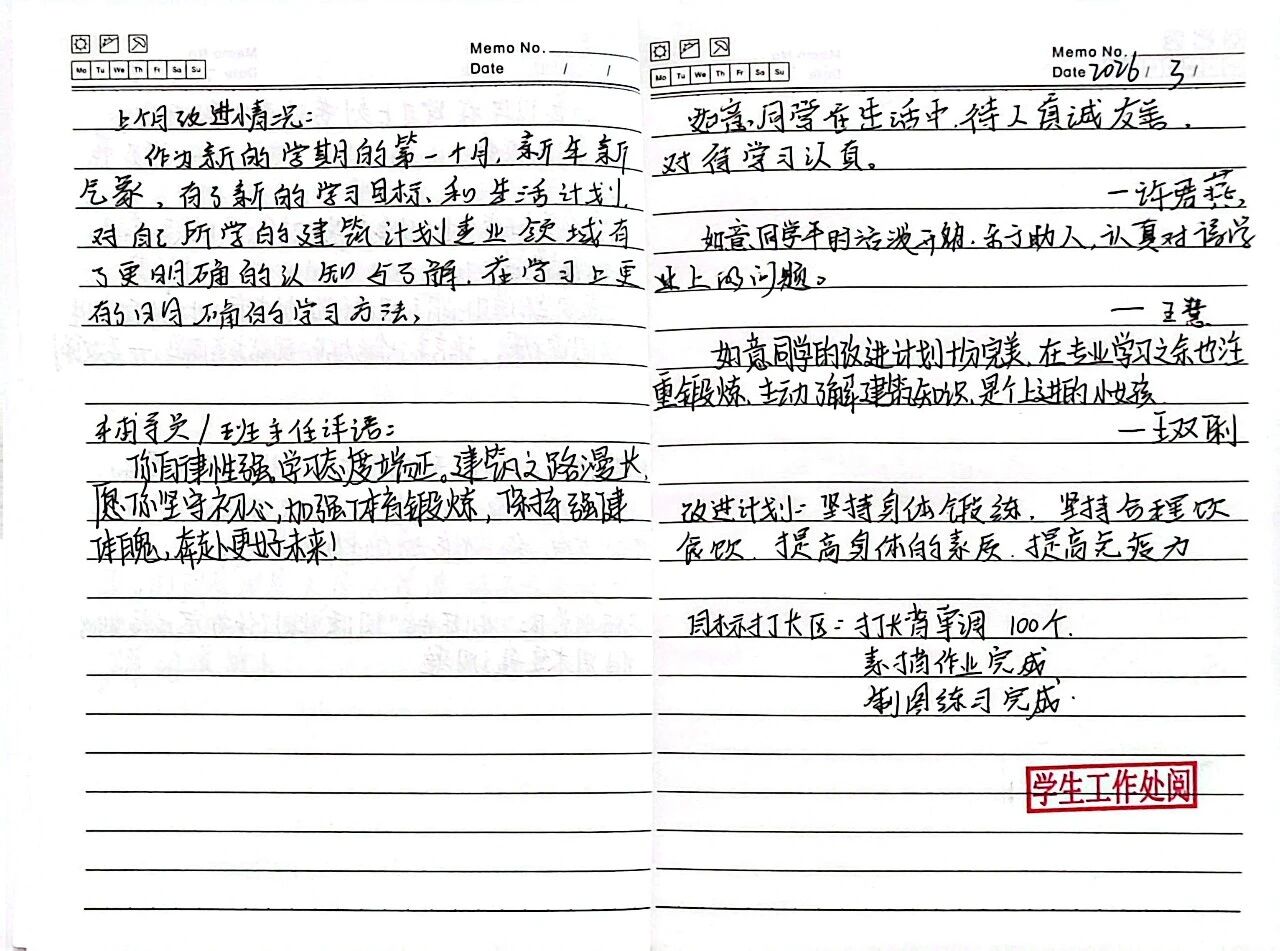 Memo No.
Mo Tu We Th Fr Sa Su
Date / /
上个月改进情况:
作为新的学期的第一个月,新年新
气象,有了新的学习目标、和生活计划,
对自己所学的建筑计划专业领域有
了更明确的认知与了解.在学习上更
有的明确的学习方法,
辅导员/班主任评语:
你自律性强,学习态度端正。建筑之路漫长,
愿你坚守初心,加强体育锻炼,保持强健
体魄,奔赴更好未来!
Memo No.
Mo Tu We Th Fr Sa Su
Date 2026 / 3 /
如意同学在生活中,待人真诚友善,
对待学习认真。
—许君燕
如意同学平时活泼开朗.乐于助人,认真对待学
业上的问题。
—王慧
如意同学的改进计划十分完美,在专业学习之余也注
重锻炼,主动了解建筑知识,是个上进的小女孩
—王双利
改进计划:坚持身体锻练.坚持合理饮
食饮.提高身体的素质.提高免疫力
目标打卡区:打卡背单词 100个.
素描作业完成
制图练习完成.
学生工作处阅